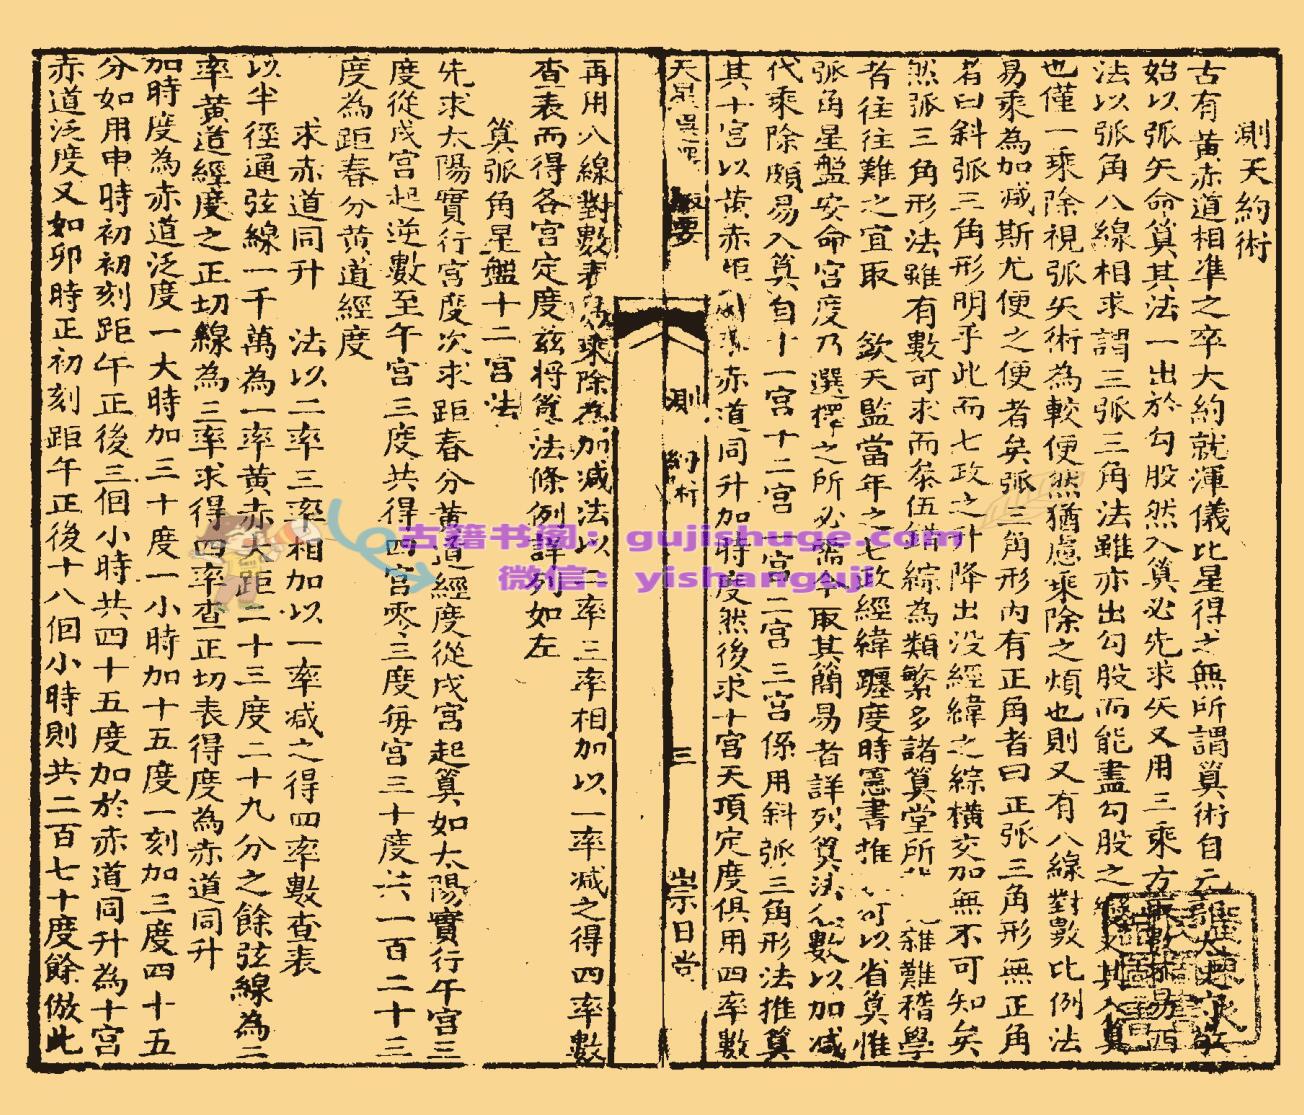 測天約術
古有黃赤道相準之率大約就渾儀比星得之無所謂筭術自元
始以弧矢命筭其法一出於勾股然入筭必先求矢又用三乘方取數不易西
法以弧角八線相求謂三弧三角法雖亦出勾股而能盡勾股之
也僅一乘除視弧矢術為較便然猶慮乘除之煩也則又有八線對數比例法
易乘為加减斯尤便之便者矣弧三角形內有正角者曰正張三角形無正角
者曰斜弧三角形明乎此而七政之升降出没經緯之綜橫交加無不可知矣
然弧三角形法雖有數可求而叅伍錯綜為類繁多諸筭堂所 雜難稽學
者往往難之宜取 欽天監當年之七政經緯躔度時憲書推 可以省筭惟
弧角星盤安命宮度乃選擇之所必需今取其簡易者詳列筭法 數以加减
代乘除頗易入筭自十一宮十二宮一宮二宮三宮係用斜弧三角形法推筭
其十宮以黃赤距 赤道同升加時度然後求十宮天頂定度俱用四率數
測 約術
三
再用八線對數表 乘除為加减法以二率三率相加以一率减之得四率數
查表而得各宮定度兹將筭法條例詳列如左
筭弧角星盤十二宮法
先求太陽實行宮度次求距春分黃道經度從戌宮起筭如太陽實行午宮三
度從戌宮起逆數至午宮三度共得四宮零三度每宮三十度共一百二十三
度為距春分黃道經度
求赤道同升 法以二率三率相加以一率减之得四率數查表
以半徑通弦線一千萬為一率黃赤大距二十三度二十九分之餘弦線為二
率黃道經度之正切線為三率求得四率查正切表得度為赤道同升
加時度為赤道泛度一大時加三十度一小時加十五度一刻加三度四十五
分如用申時初初刻距午正後三個小時共四十五度加於赤道同升為十宮
赤道泛度又如卯時正初刻距午正後十八個小時則共二百七十度餘倣此
古籍书阁：gujishuge.com
微信：yishanguji